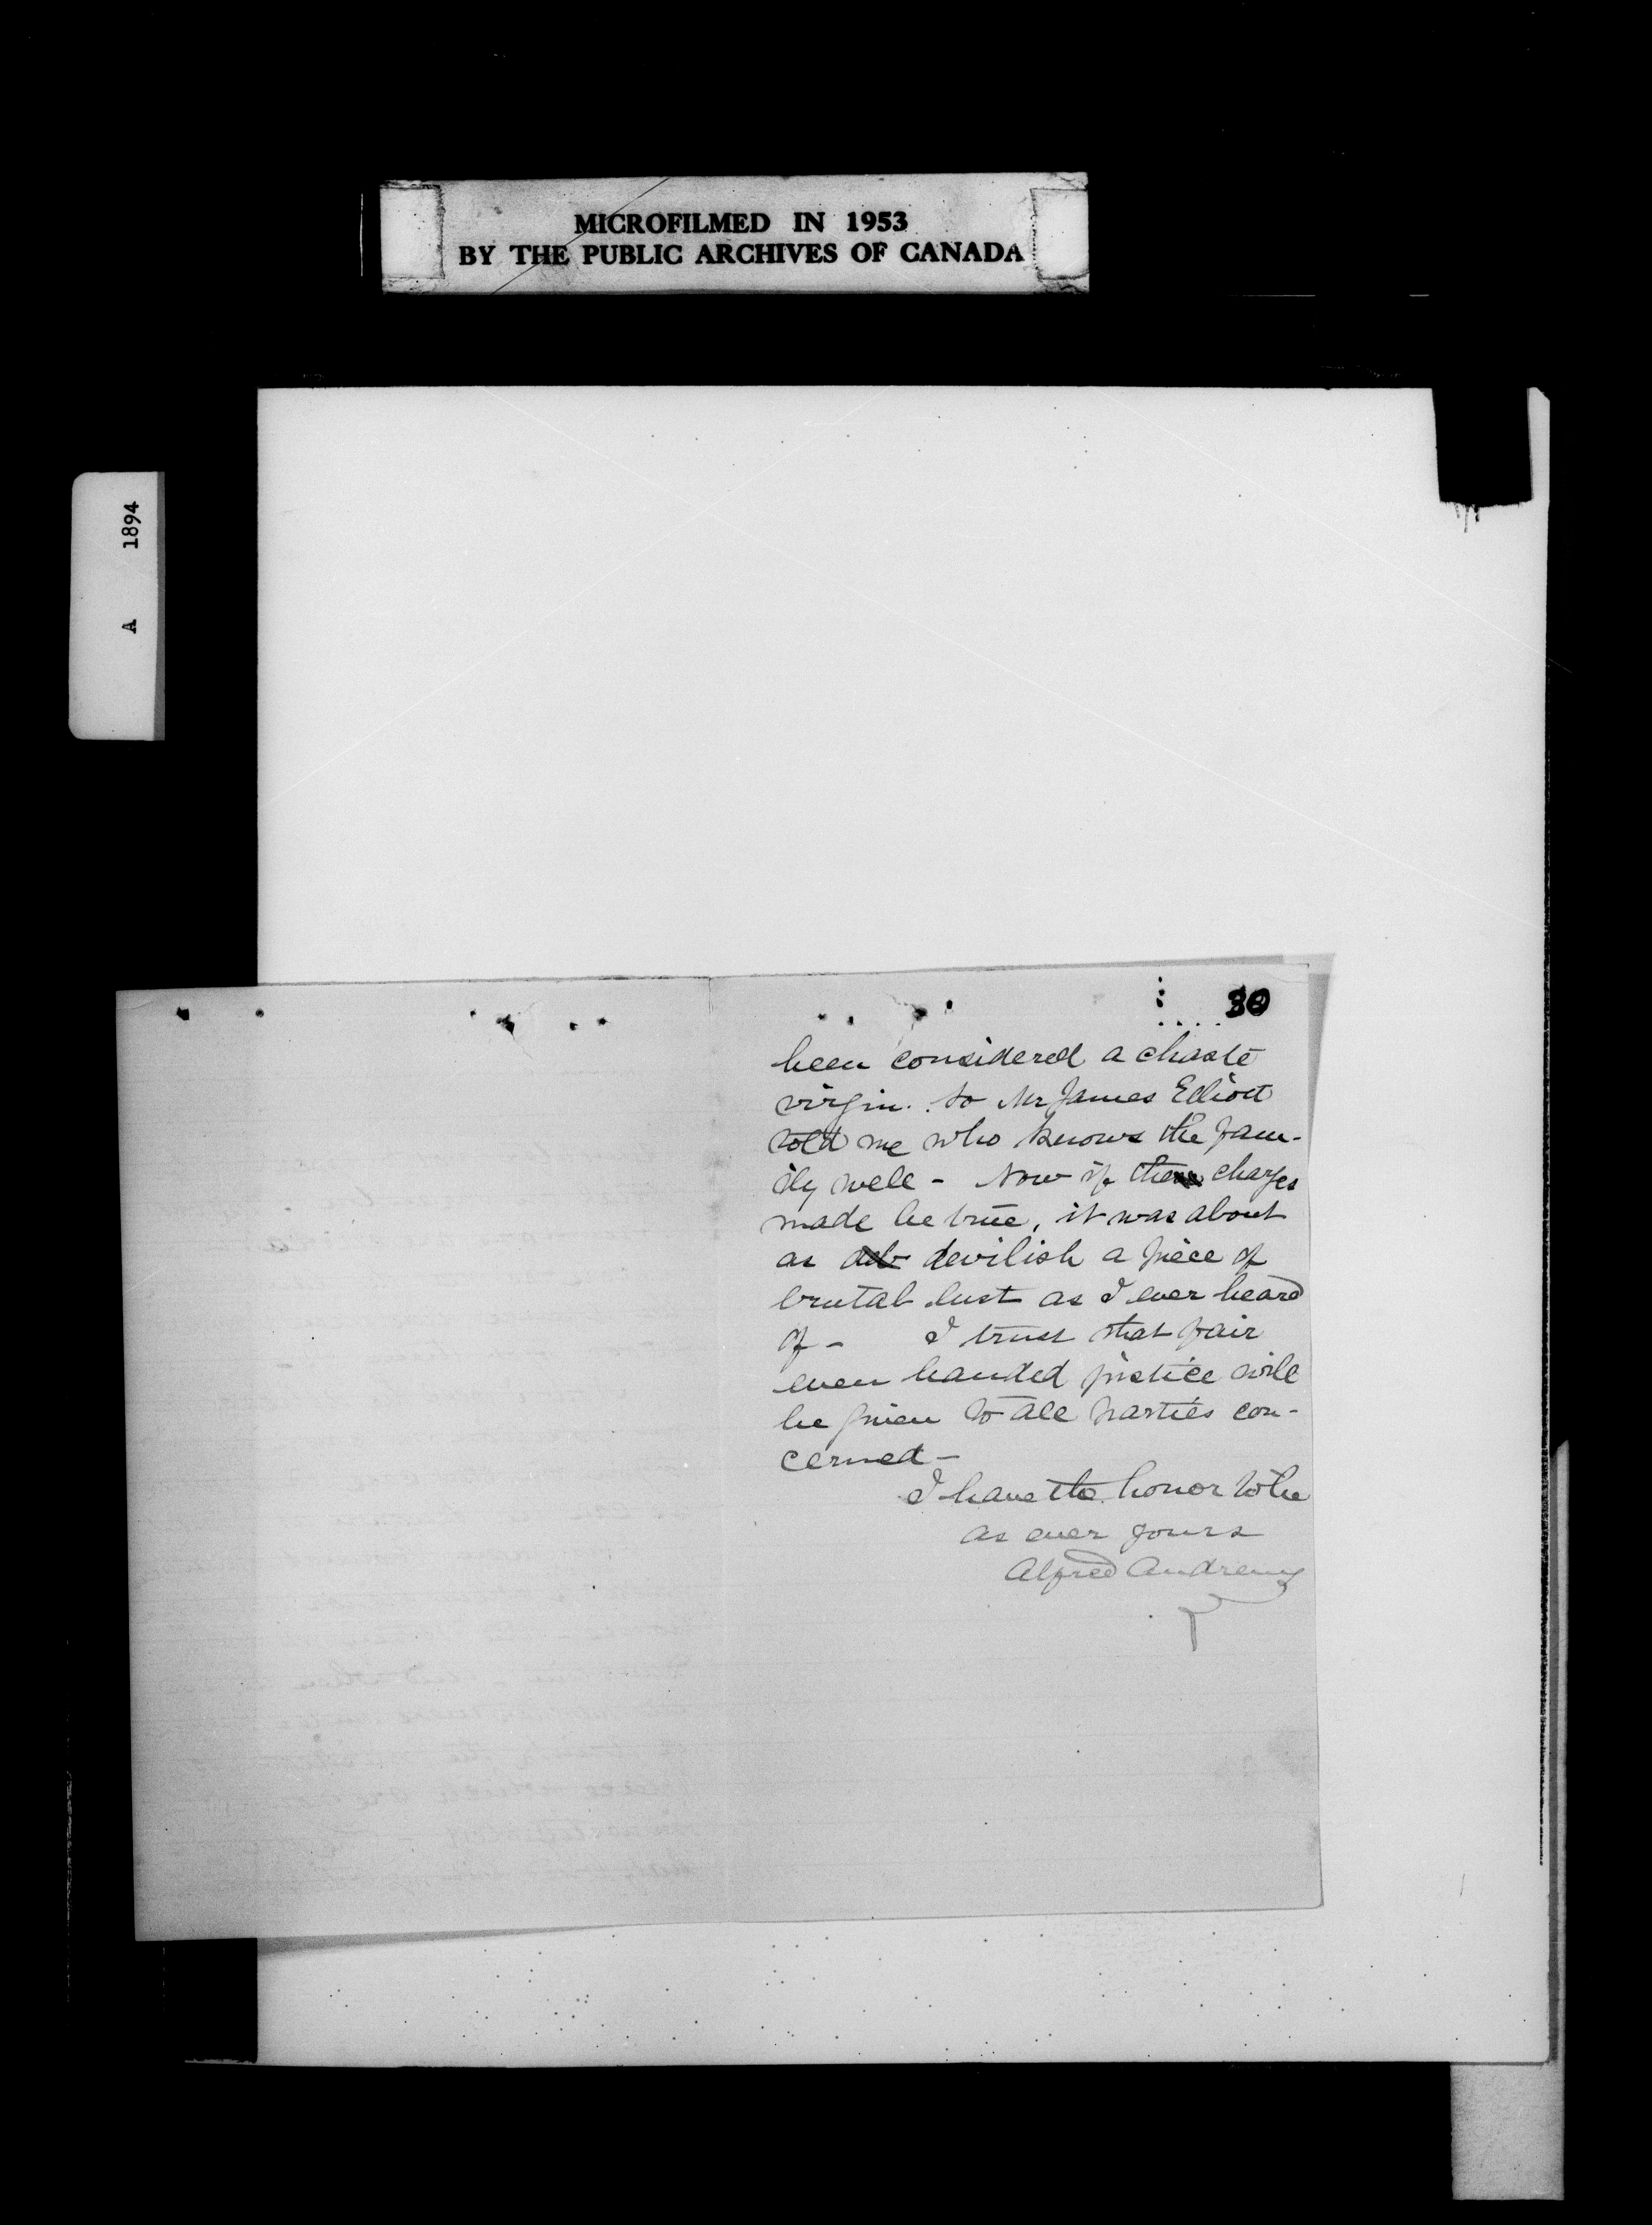 MICROFILMED IN 1953
BY THE PUBLIC ARCHIVES OF CANADA
A 1894
30
been considered a chaste
virgin. So Mr James Elliott
told me who knows the fam-
ily well - Now if the charges
made be true, it was about
as devilish a piece of
brutal lust as I ever heard
of - I trust that fair
even handed justice will
be given to all parties con-
cerned -
I have the honor to be
as ever yours
Alfred Andrews